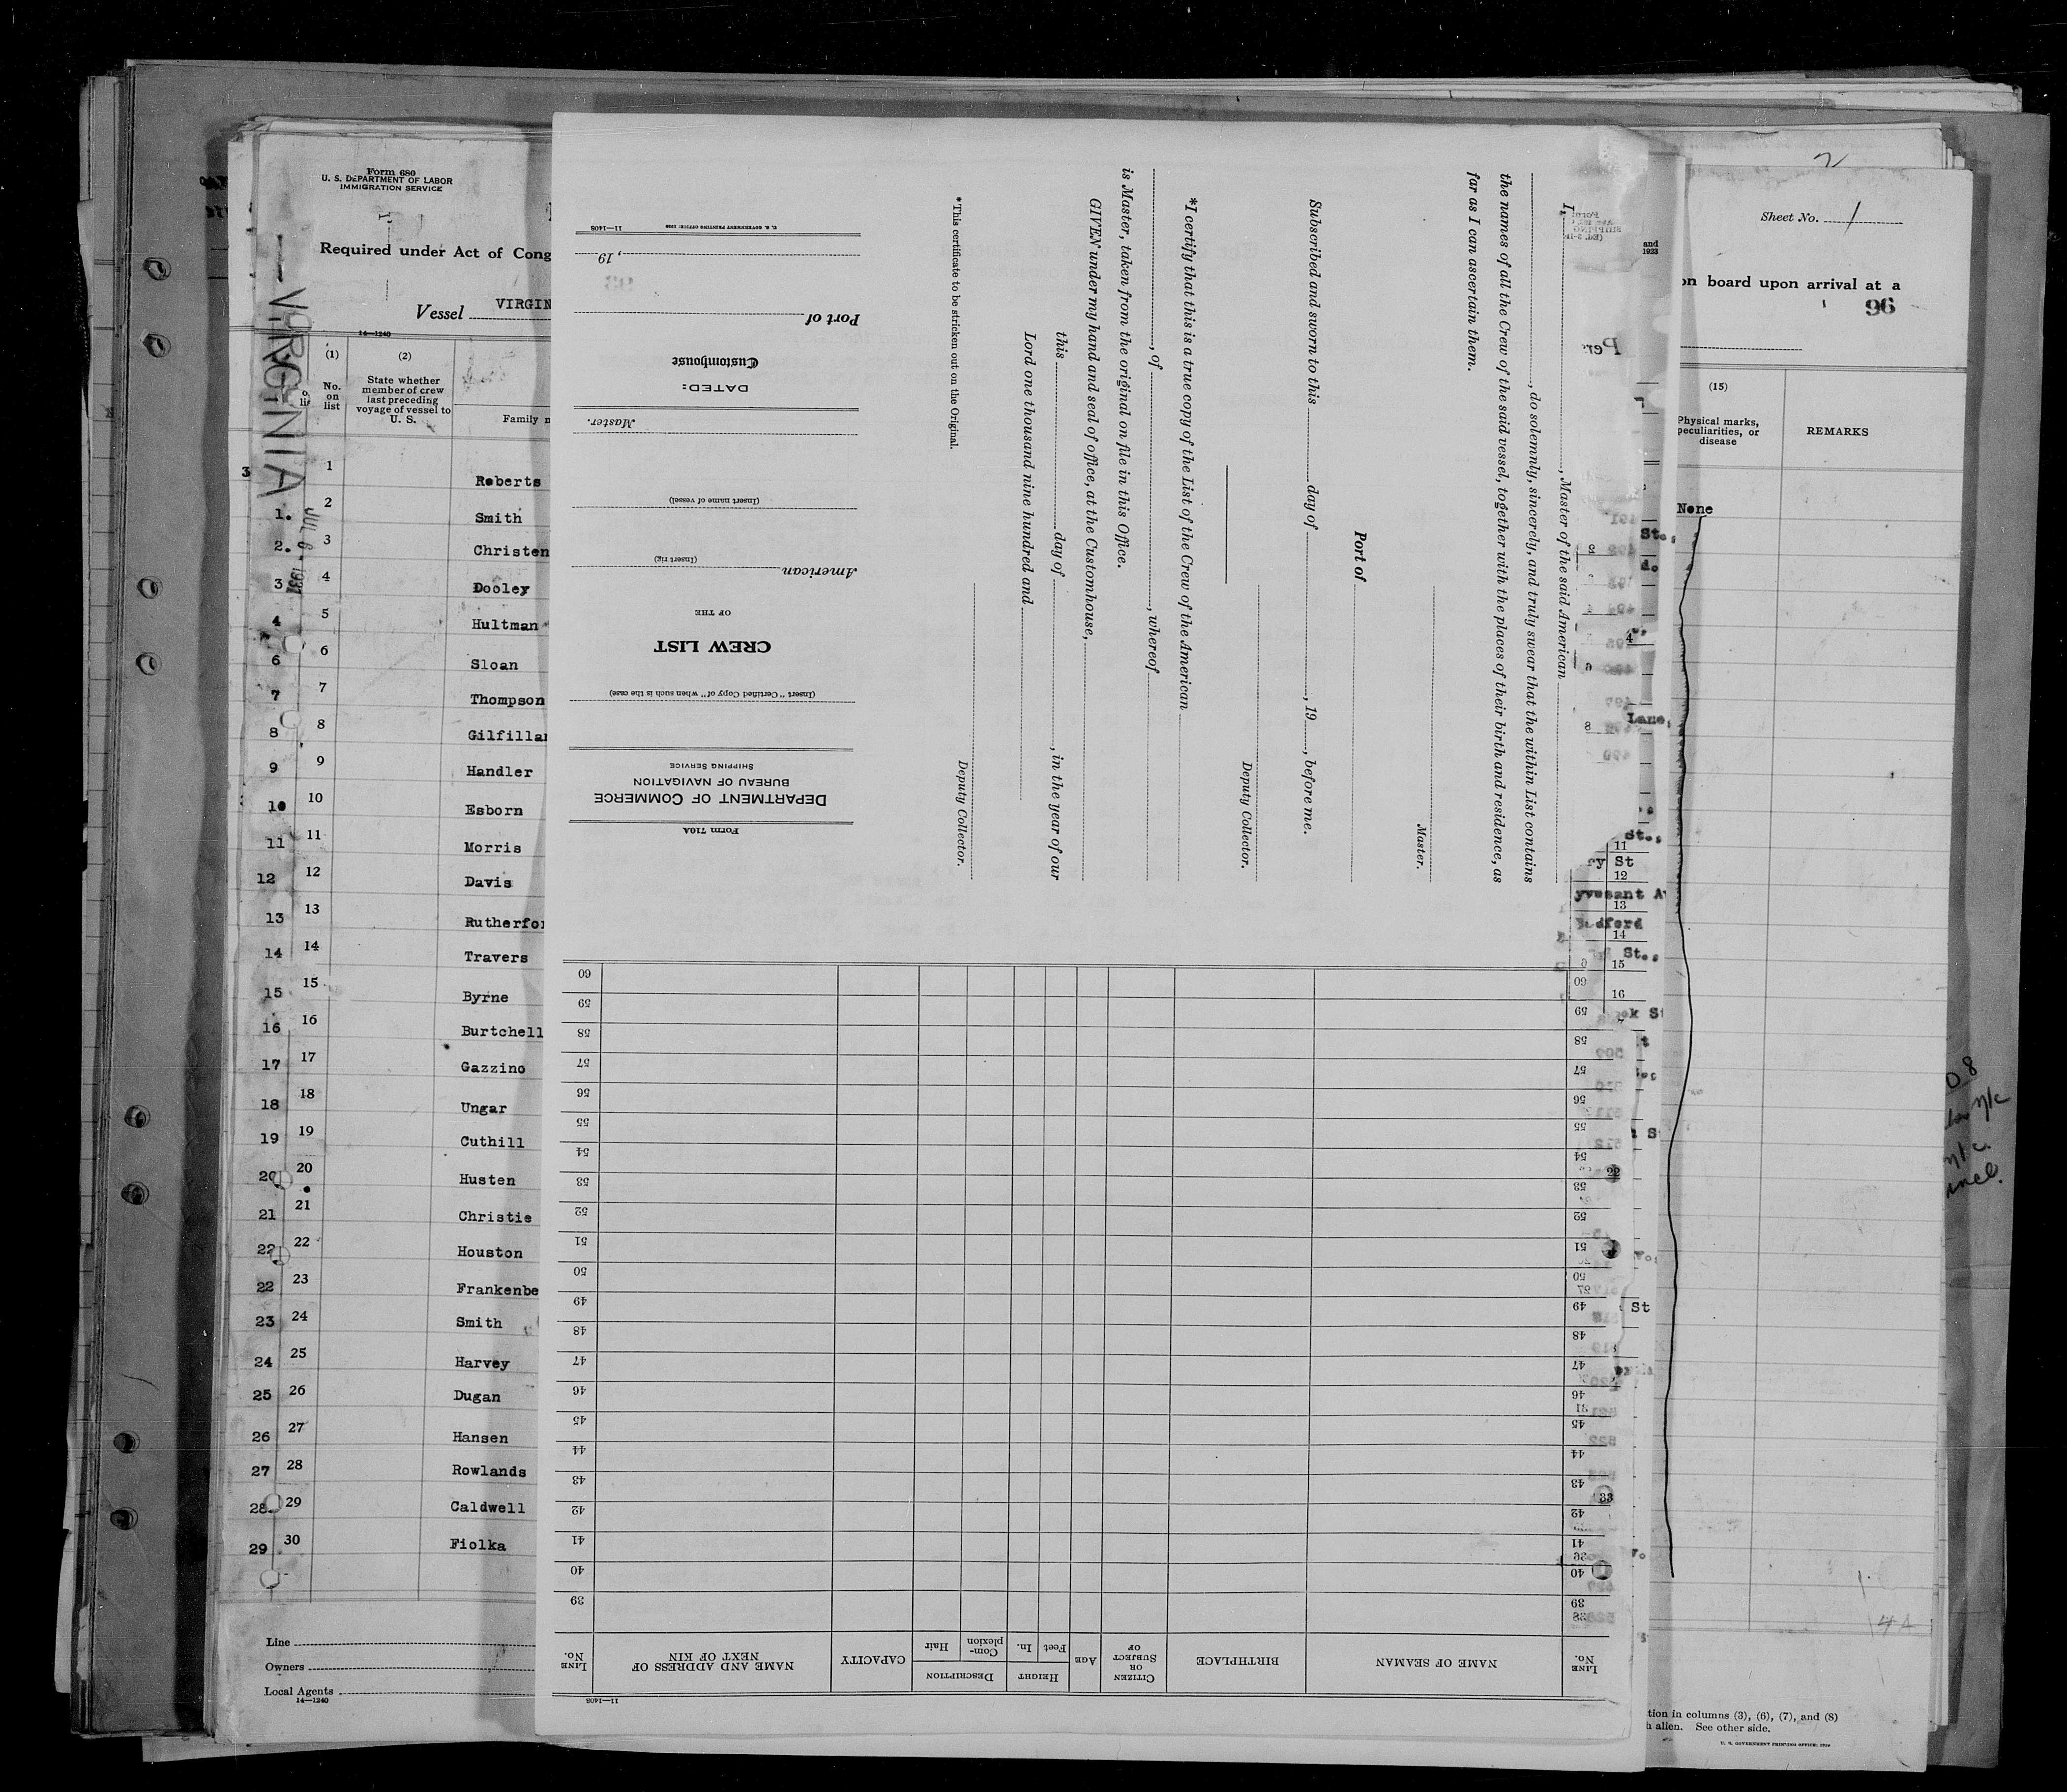 Form 680
U. S. DEPARTMENT OF LABOR
IMMIGRATION SERVICE
Required under Act of Cong
Vessel VIRGIN
14—1240
VIRGINIA
(1)
No. on list
(2)
State whether member of crew last preceding voyage of vessel to U. S.
Family n
3 1 Roberts
1. 2 Smith
2. 3 Christen
3 4 Dooley
4 5 Hultman
6 6 Sloan
7 7 Thompson
8 8 Gilfillan
9 9 Handler
10 10 Esborn
11 11 Morris
12 12 Davis
13 13 Rutherfor
14 14 Travers
15 15 Byrne
16 16 Burtchell
17 17 Gazzino
18 18 Ungar
19 19 Cuthill
20 20 Husten
21 21 Christie
22 22 Houston
22 23 Frankenbe
23 24 Smith
24 25 Harvey
25 26 Dugan
26 27 Hansen
27 28 Rowlands
28 29 Caldwell
29 30 Fiolka
Line
Owners
Local Agents
14—1240
Form 710A
DEPARTMENT OF COMMERCE
BUREAU OF NAVIGATION
SHIPPING SERVICE
(Insert "Certified Copy of" when such is the case)
CREW LIST
OF THE
American
(Insert rig)
(Insert name of vessel)
Master.
DATED:
Customhouse
Port of
, 19
U. S. GOVERNMENT PRINTING OFFICE: 1936
11—1408
I, , Master of the said American
, do solemnly, sincerely, and truly swear that the within List contains
the names of all the Crew of the said vessel, together with the places of their birth and residence, as
far as I can ascertain them.
Master.
Port of
Subscribed and sworn to this day of , 19 , before me.
Deputy Collector.
*I certify that this is a true copy of the List of the Crew of the American
, of , whereof
is Master, taken from the original on file in this Office.
GIVEN under my hand and seal of office, at the Customhouse,
this day of , in the year of our
Lord one thousand nine hundred and
Deputy Collector.
*This certificate to be stricken out on the Original.
11—1408
LINE No.
NAME OF SEAMAN
BIRTHPLACE
CITIZEN OR SUBJECT OF
AGE
HEIGHT
Feet
In.
DESCRIPTION
Complexion
Hair
CAPACITY
NAME AND ADDRESS OF NEXT OF KIN
LINE No.
39
40
41
42
43
44
45
46
47
48
49
50
51
52
53
54
55
56
57
58
59
60
and
1923
St.,
do
Lane,
St.,
11
St
12
yvesant A
13
dford
14
St.,
15
16
St
Sheet No. 1
on board upon arrival at a
96
(15)
Physical marks, peculiarities, or disease
REMARKS
None
tion in columns (3), (6), (7), and (8)
h alien. See other side.
U. S. GOVERNMENT PRINTING OFFICE